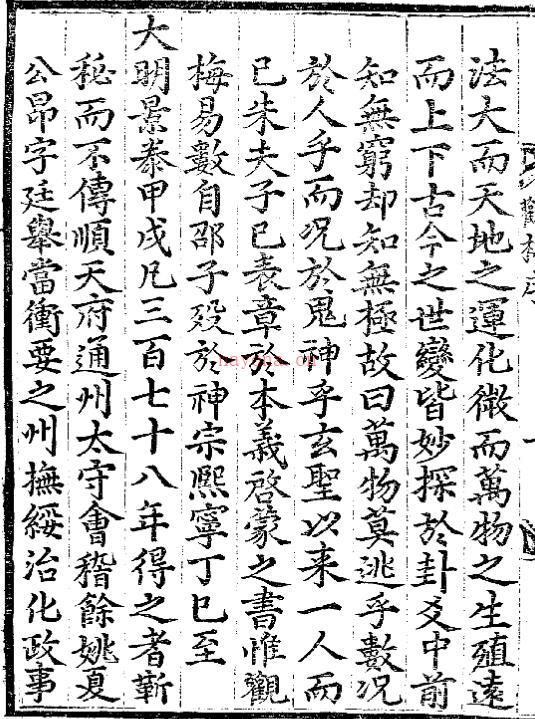 法大而天地之運化微而萬物之生殖遠
而上下古今之世變皆妙探於卦爻中前
知無窮却知無極故曰萬物莫逃乎數况
於人乎而况於鬼神乎玄聖以来一人而
已朱夫子已表章於本義啓蒙之書惟觀
梅易數自邵子殁於神宗熙寧丁巳至
大明景泰甲戌凡三百七十八年得之者靳
秘而不傳順天府通州太守會稽餘姚夏
公昂字廷舉當衝要之州撫綏治化政事